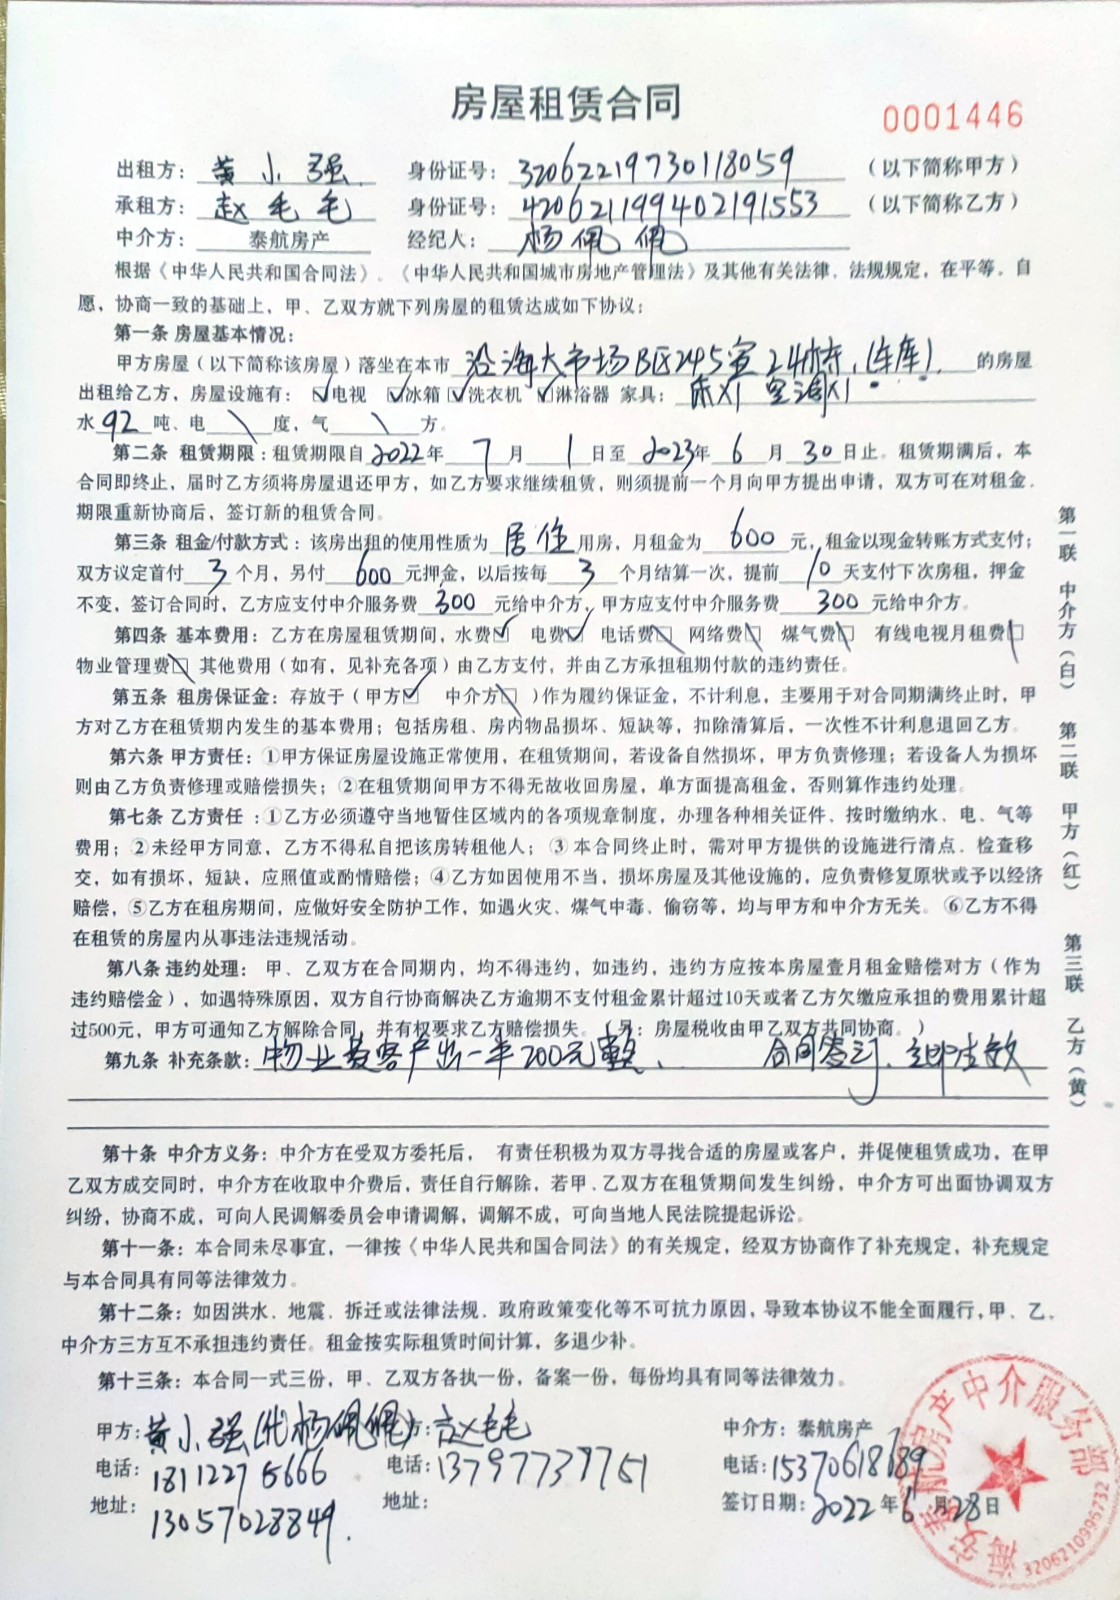 房屋租赁合同
0001446
出租方：黄小强 身份证号：320622197301118059 （以下简称甲方）
承租方：赵毛毛 身份证号：420621199402191553 （以下简称乙方）
中介方：泰航房产 经纪人：杨佩佩
根据《中华人民共和国合同法》、《中华人民共和国城市房地产管理法》及其他有关法律、法规规定，在平等、自
愿，协商一致的基础上，甲、乙双方就下列房屋的租赁达成如下协议：
第一条 房屋基本情况：
甲方房屋（以下简称该房屋）落坐在本市 沿海大市场B区245室24栋（车库）. 的房屋
出租给乙方，房屋设施有：☑电视 ☑冰箱 ☑洗衣机 ☑淋浴器 家具：床X1 空调X1
水 92 吨、电 \ 度，气 \ 方。
第二条 租赁期限：租赁期限自2022年 7 月 1 日至 2023年 6 月 30 日止。租赁期满后，本
合同即终止，届时乙方须将房屋退还甲方，如乙方要求继续租赁，则须提前一个月向甲方提出申请，双方可在对租金、
期限重新协商后，签订新的租赁合同。
第三条 租金/付款方式：该房出租的使用性质为 居住 用房，月租金为 600 元，租金以现金转账方式支付；
双方议定首付 3 个月，另付 600 元押金，以后按每 3 个月结算一次，提前 10 天支付下次房租，押金
不变，签订合同时，乙方应支付中介服务费 300 元给中介方，甲方应支付中介服务费 300 元给中介方。
第四条 基本费用：乙方在房屋租赁期间，水费☑ 电费☑ 电话费□ 网络费□ 煤气费□ 有线电视月租费□
物业管理费□ 其他费用（如有，见补充各项）由乙方支付，并由乙方承担租期付款的违约责任。
第五条 租房保证金：存放于（甲方☑ 中介方□ ）作为履约保证金，不计利息，主要用于对合同期满终止时，甲
方对乙方在租赁期内发生的基本费用；包括房租、房内物品损坏、短缺等，扣除清算后，一次性不计利息退回乙方。
第六条 甲方责任：①甲方保证房屋设施正常使用，在租赁期间，若设备自然损坏，甲方负责修理；若设备人为损坏
则由乙方负责修理或赔偿损失；②在租赁期间甲方不得无故收回房屋，单方面提高租金，否则算作违约处理。
第七条 乙方责任：①乙方必须遵守当地暂住区域内的各项规章制度，办理各种相关证件、按时缴纳水、电、气等
费用；②未经甲方同意，乙方不得私自把该房转租他人；③本合同终止时，需对甲方提供的设施进行清点、检查移
交，如有损坏，短缺，应照值或酌情赔偿；④乙方如因使用不当，损坏房屋及其他设施的，应负责修复原状或予以经济
赔偿，⑤乙方在租房期间，应做好安全防护工作，如遇火灾、煤气中毒、偷窃等，均与甲方和中介方无关。⑥乙方不得
在租赁的房屋内从事违法违规活动。
第八条 违约处理：甲、乙双方在合同期内，均不得违约，如违约，违约方应按本房屋壹月租金赔偿对方（作为
违约赔偿金），如遇特殊原因，双方自行协商解决乙方逾期不支付租金累计超过10天或者乙方欠缴应承担的费用累计超
过500元，甲方可通知乙方解除合同，并有权要求乙方赔偿损失。（另：房屋税收由甲乙双方共同协商。）
第九条 补充条款：物业费客户出一半200元整、 合同签订、立即生效
第十条 中介方义务：中介方在受双方委托后， 有责任积极为双方寻找合适的房屋或客户，并促使租赁成功，在甲
乙双方成交同时，中介方在收取中介费后，责任自行解除，若甲、乙双方在租赁期间发生纠纷，中介方可出面协调双方
纠纷，协商不成，可向人民调解委员会申请调解，调解不成，可向当地人民法院提起诉讼。
第十一条：本合同未尽事宜，一律按《中华人民共和国合同法》的有关规定，经双方协商作了补充规定，补充规定
与本合同具有同等法律效力。
第十二条：如因洪水、地震、拆迁或法律法规、政府政策变化等不可抗力原因，导致本协议不能全面履行，甲、乙、
中介方三方互不承担违约责任。租金按实际租赁时间计算，多退少补。
第十三条：本合同一式三份，甲、乙双方各执一份，备案一份，每份均具有同等法律效力。
甲方：黄小强（代杨佩佩） 方：赵毛毛 中介方：泰航房产
电话：18112276666 电话：13797737751 电话：15370618189
地址：13057028849. 地址： 签订日期：2022年6月28日
第一联 中介方（白） 第二联 甲方（红） 第三联 乙方（黄）
海安泰航房产中介服务部
3206210996732